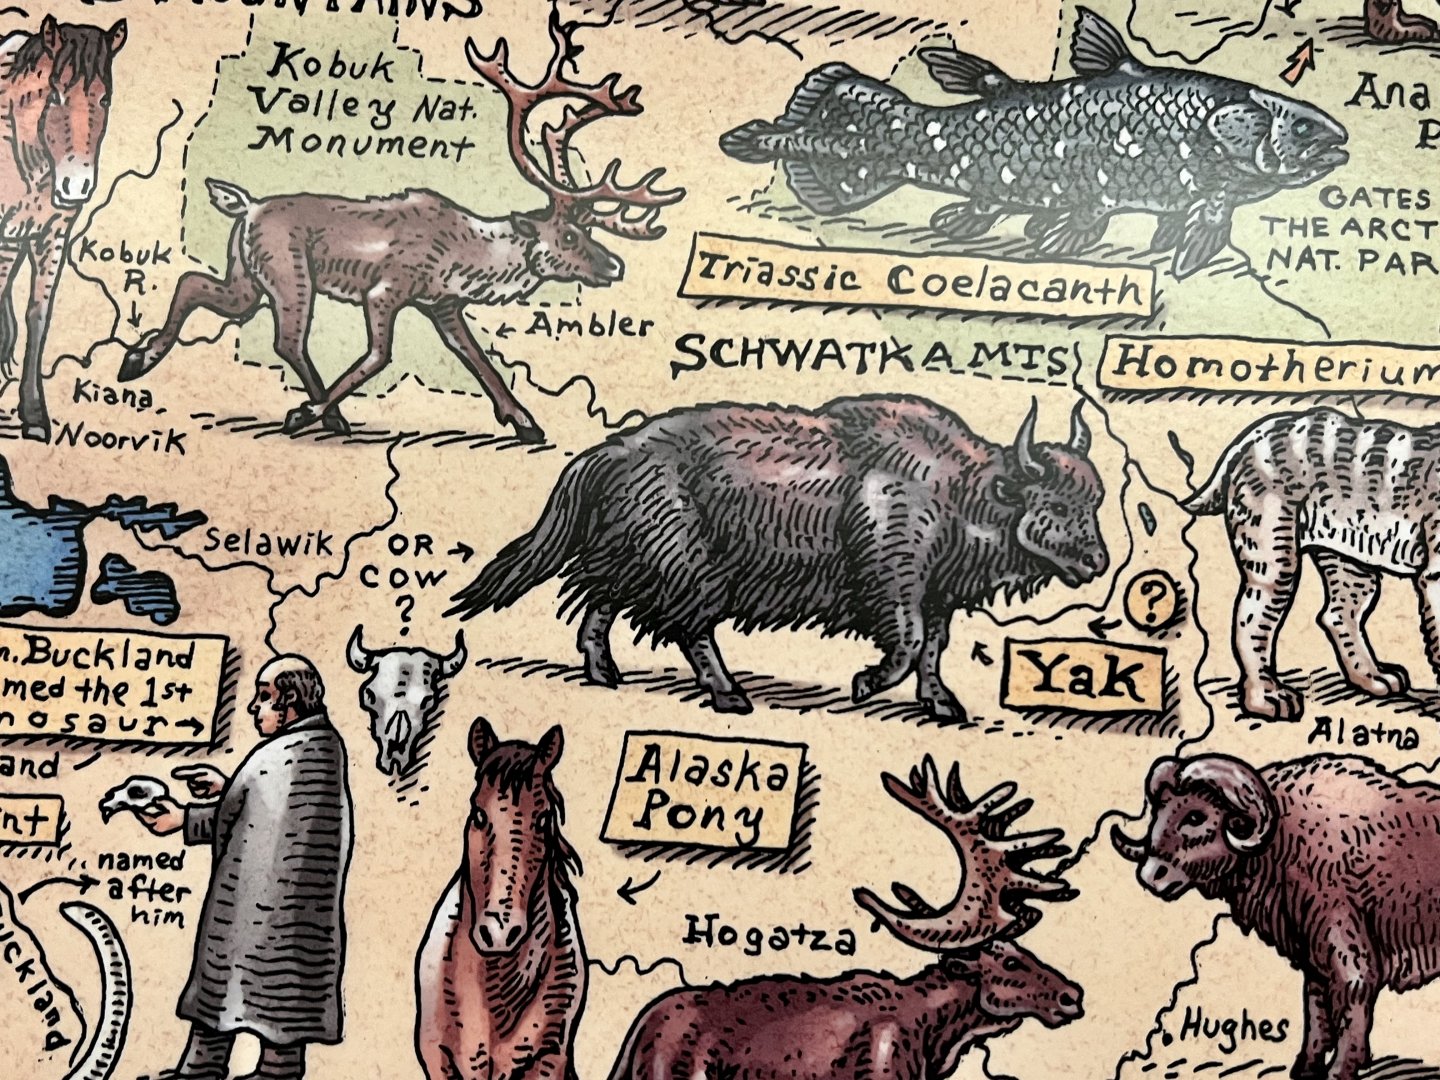 MOUNTAINS
Kobuk
Valley Nat.
Monument
Ana
P
GATES
THE ARCT
NAT. PAR
Kobuk
R.
Triassic Coelacanth
Ambler
SCHWATKA MTS
Homotherium
Kiana
Noorvik
Selawik
OR
COW
?
?
Yak
m. Buckland
med the 1st
nosaur
and
nt
named
after
him
Buckland
Alaska
Pony
Alatna
Hogatza
Hughes